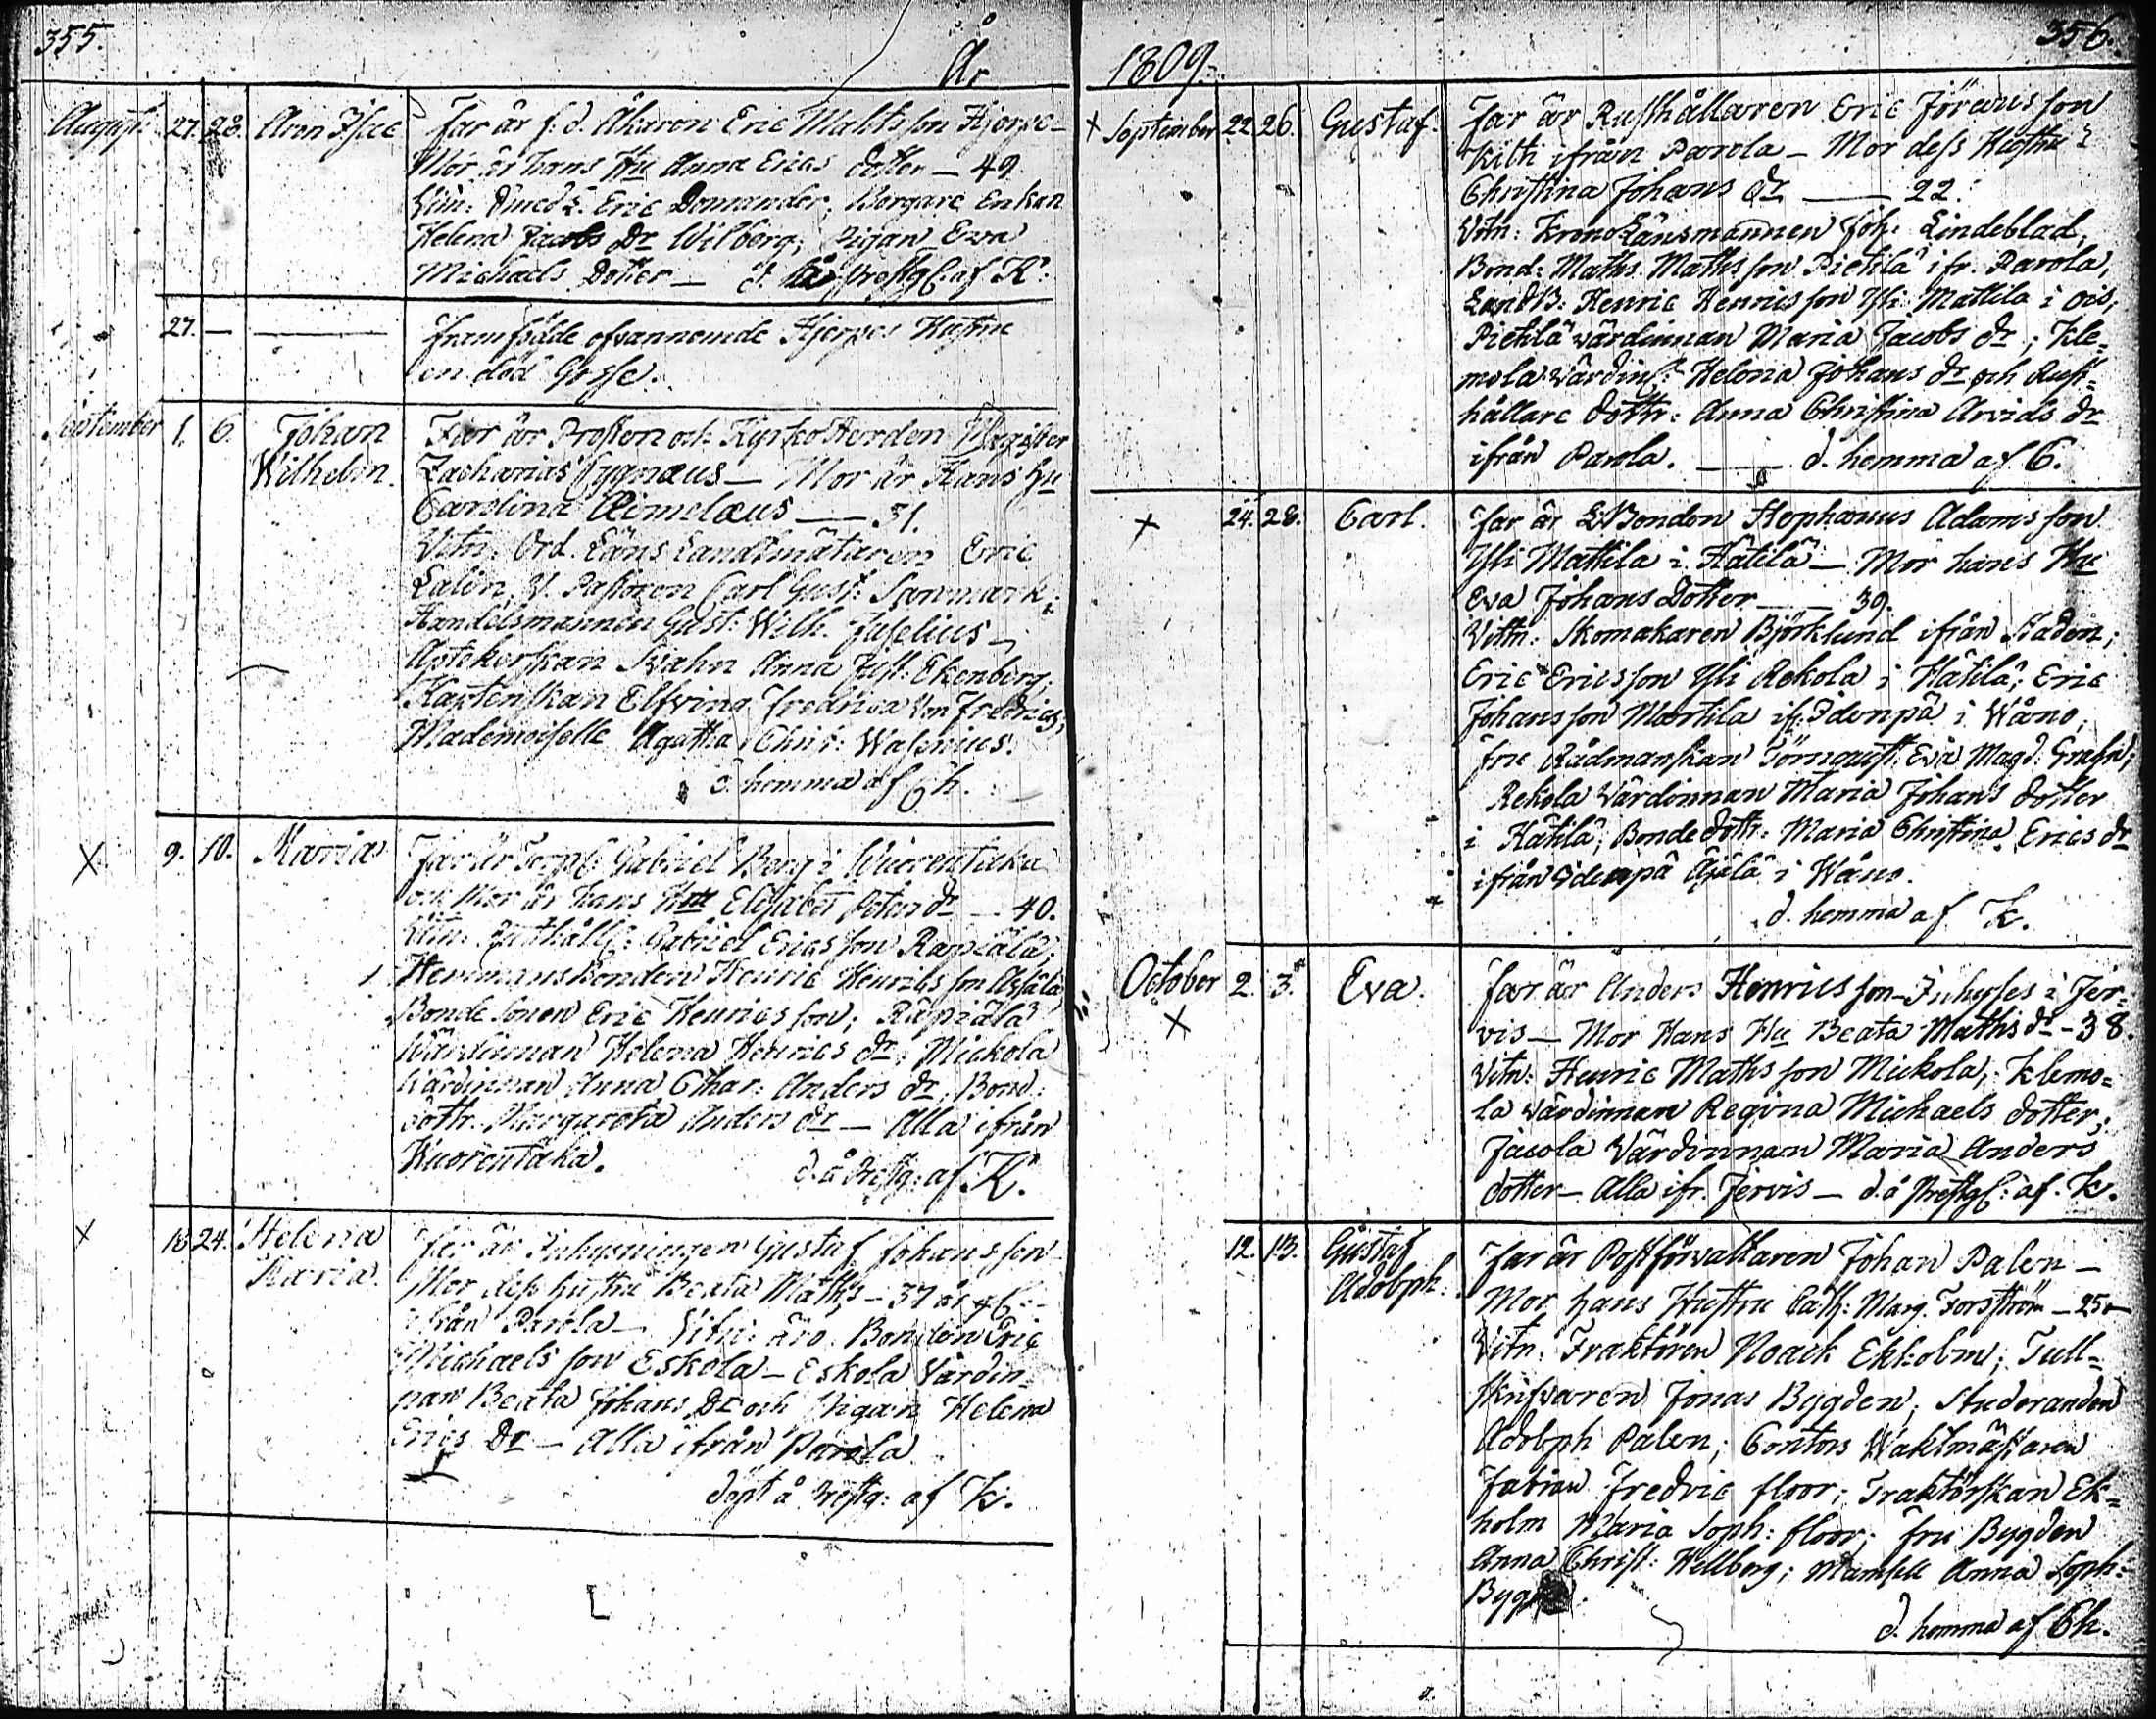 355.
År
Augusti 27. 28. Ann Isac Far är f. d. Åkaren Eric Mattsson Hjerpe-
Mor är hans Hu Anna Erics dotter - 49
Eric Domander, Borgare Enkan
Helena Jacobs Dr Wilberg; Pigan Ewa
Michaels Dotter - af K:
27. - framfödde ofvannemde Hjerpes Hustru
en död Gosse.
September 1. 6. Johan Far är Prosten och KyrkoHerden Magister
Wilhelm. Zacharias Cygnæus - Mor är Hans Hu
Carolina Æimelæus - 31.
Vitn: Ord. Läns Landtmätaren Eric
Lalin, V. Pastoren Carl Gust:
Handelsmannen Gust: Wilh. Juselius -
Apotekerskan Svahn Anna Ekenberg;
Kaptenskan Elfving Fredrica von Fredrics;
Mademoiselle Agatha
d. hemma af Ch.
X 9. 10. Maria Far är Torp: Gabriel Berg i Wuorentaka
och Mor är hans Hu Elisabet Peters dr - 40.
Vitn: Gabriel Ericsson Rapiala;
Hemmansbonden Henric Henricsson
Bonde Sonen Eric Henricsson; Räpiälä
Wärdinnan Helena Henrics dr; Mickola
wärdinnan Anna Char: Anders dr, Bond:
dottr. Margareta Anders dr - Alla ifrån
Wuorentaka. d. å Prestg: af K.
X 18 24. Helena Far är Inhysningen Gustaf Johansson
Maria. Mor dess hustru Beata Maths - 37 år
ifrån Parola - Vitn: äro Bonden Eric
Michaelsson Eskola - Eskola Värdin-
nan Beata Johans Dr och Pigan Helena
Erics Dr - Alla ifrån Parola
döpt å Prestg: af K.
356.
1809.
X September 22 26. Gustaf. Far är Rusthållaren Eric Jöransson
Kilti ifrån Parola - Mor dess Hustru
Christina Johans dr - 22.
Vitn: KronoLänsmannen Joh: Lindeblad,
Bond: Maths Mathsson Pietilä ifr. Parola;
LandB: Henric Henricsson Yli Mattila i Ois;
Pietilä wärdinnan Maria Jacobs dr; Kle=
mola wärdins: Helena Johans dr och Rust=
hållare dottr: Anna Christina Arvids dr
ifrån Parola. - d. hemma af C.
X 24. 28. Carl. Far är LBonden Stephanus Adamsson
Yli Mattila i Hätilä - Mor hans Hu
Eva Johans Dotter - 39.
Vittn: Skomakaren Björklund ifrån Staden;
Eric Ericsson Yli Rekola i Hätilä; Eric
Johansson Marttila ifr: Idenpä i Wåno;
Fru Rådmanskan Törnquist Eva Magd:
Rekola Wärdinnan Maria Johans dotter
i Hätilä; Bonde dottr: Maria Christina Erics dr
ifrån Idenpä Äjälä i Wåno.
d. hemma af K.
October 2. 3. Eva. Far är Anders Henricsson - Inhyses i Jer=
X vis - Mor Hans Hu Beata Maths dr - 38.
Vitn: Henric Mathsson Mickola; Klemo=
la wärdinnan Regina Michaels dotter;
Jacola Värdinnan Maria Anders
dotter - Alla ifr. Jervis - d. å Prestg: af. K.
12. 13. Gustaf Far är Postförvaltaren Johan Palen -
Adolph: Mor hans Hustru Cath: Marg. Forsström - 25
Vitn: Traktören Noack Ekholm; Tull=
skrifvaren Jonas Bygden; Studeranden
Adolph Palen; Contors Waktmästaren
Fabian Fredric Floor; Traktörskan Ek=
holm Maria Soph: Floor; Fru Bygden
Anna Christ: Hellberg; Mamsell Anna Soph:
d. hemma af Ch.